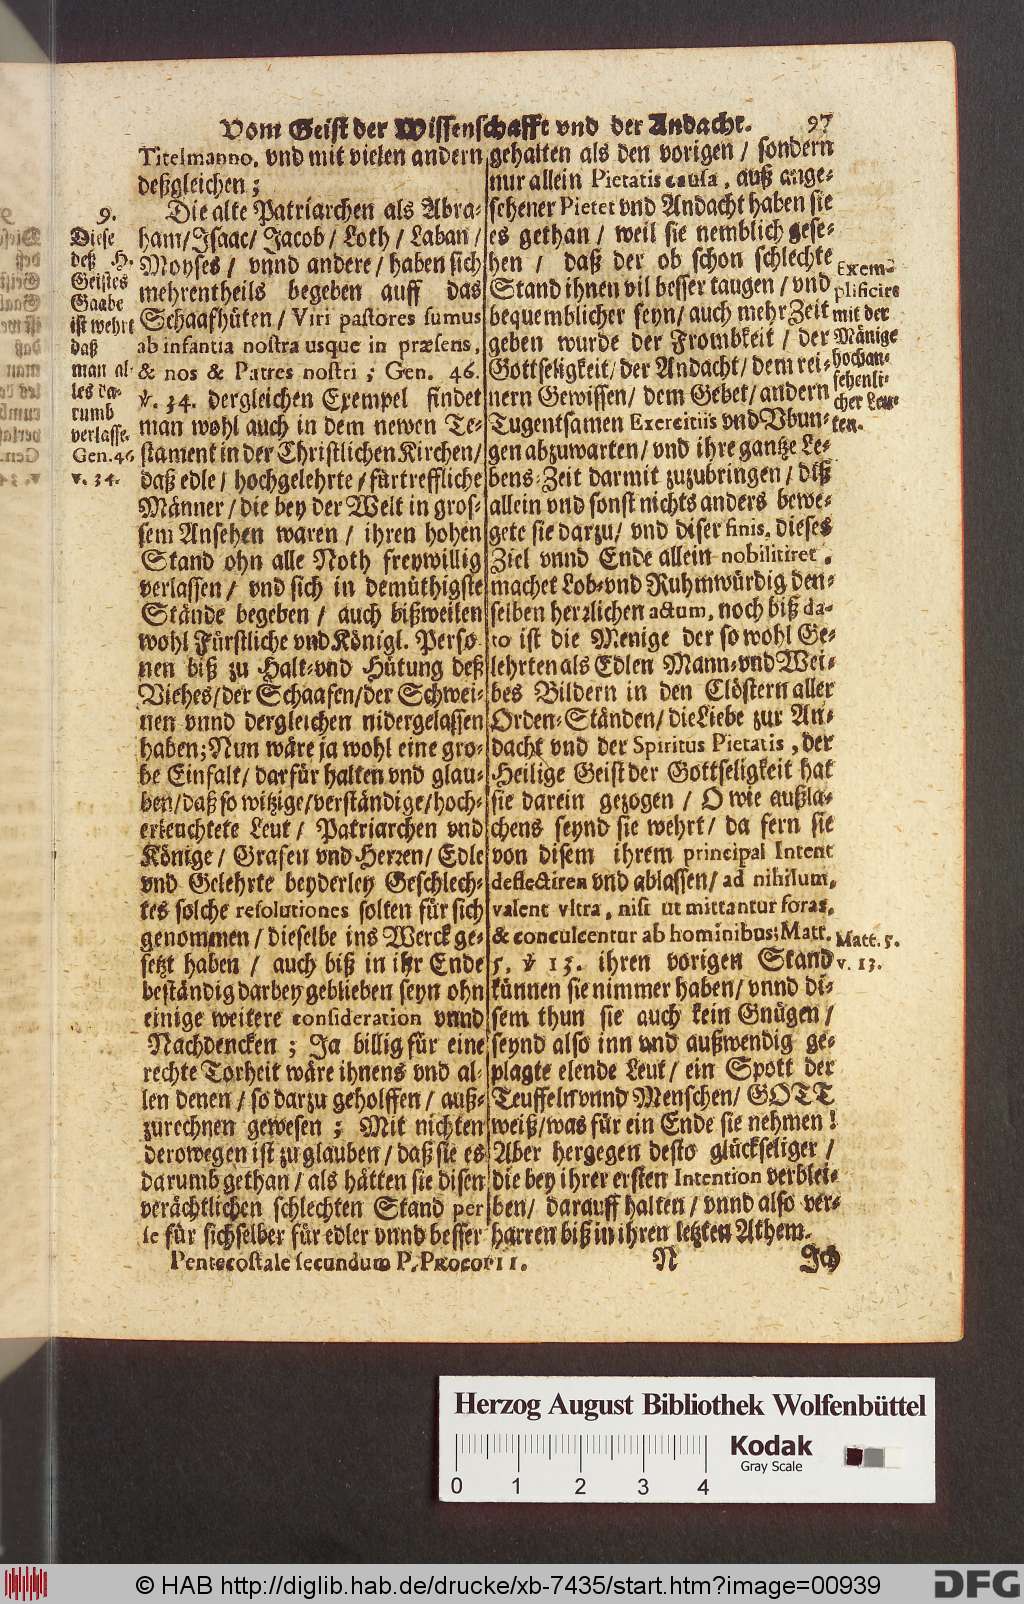 Vom Geist der Wissenschafft vnd der Andacht. 97
Titelmanno, vnd mit vielen andern
deßgleichen;
9.
Diese
deß H.
Geistes
Gaabe
ist wehrt
daß
man al-
les da-
rumb
verlasse.
Gen. 46
v. 34.
Die alte Patriarchen als Abra-
ham/ Isaac/ Jacob / Loth / Laban /
Moyses / vnnd andere / haben sich
mehrentheils begeben auff das
Schaafhüten / Viri pastores sumus
ab infantia nostra usque in præsens,
& nos & Patres nostri; Gen. 46.
v. 34. dergleichen Exempel findet
man wohl auch in dem newen Te-
stament in der Christlichen Kirchen/
daß edle / hochgelehrte / fürtreffliche
Männer / die bey der Welt in gros-
sem Ansehen waren / ihren hohen
Stand ohn alle Noth freywillig
verlassen / vnd sich in demüthigste
Stände begeben / auch bißweilen
wohl Fürstliche vnd Königl. Perso-
nen biß zu Halt- vnd Hütung deß
Viehes/ der Schaafen/ der Schwei-
nen vnnd dergleichen nidergelassen
haben; Nun wäre ja wohl eine gro-
be Einfalt/ darfür halten vnd glau-
ben/ daß so witzige/ verständige/ hoch-
erleuchtete Leut / Patriarchen vnd
Könige / Grafen vnd Herren/ Edle
vnd Gelehrte beyderley Geschlech-
tes solche resolutiones solten für sich
genommen / dieselbe ins Werck ge-
setzt haben / auch biß in ihr Ende
beständig darbey geblieben seyn ohn
einige weitere consideration vnnd
Nachdencken; Ja billig für eine
rechte Torheit wäre ihnens vnd al-
len denen / so darzu geholffen / auß-
zurechnen gewesen; Mit nichten
derowegen ist zu glauben / daß sie es
darumb gethan / als hätten sie disen
verächtlichen schlechten Stand per
se für sich selber für edler vnnd besser
gehalten als den vorigen / sondern
nur allein Pietatis causa, auß ange-
sehener Pietet vnd Andacht haben sie
es gethan / weil sie nemblich gese-
hen / daß der ob schon schlechte
Stand ihnen vil besser taugen / vnd
bequemblicher seyn / auch mehr Zeit
geben wurde der Frombkeit / der
Gottseligkeit / der Andacht / dem rei-
nern Gewissen / dem Gebet / andern
Tugentsamen Exercitiis vnd Vbun-
gen abzuwarten / vnd ihre gantze Le-
bens-Zeit darmit zuzubringen / diß
allein vnd sonst nichts anders bewe-
gete sie darzu / vnd diser finis, dieses
Ziel vnnd Ende allein nobilitiret,
machet Lob- vnd Ruhmwürdig den-
selben herrlichen actum, noch biß da-
to ist die Menige der so wohl Ge-
lehrten als Edlen Mann- vnd Wei-
bes Bildern in den Clöstern aller
Orden-Ständen / die Liebe zur An-
dacht vnd der Spiritus Pietatis, der
Heilige Geist der Gottseligkeit hat
sie darein gezogen / O wie außla-
chens seynd sie wehrt / da fern sie
von disem ihrem principal Intent
deflectiren vnd ablassen / ad nihilum,
valent vltra, nisi ut mittantur foras,
& conculcentur ab hominibus; Matt.
5. v 13. ihren vorigen Stand
künnen sie nimmer haben / vnnd di-
sem thun sie auch kein Gnügen /
seynd also inn vnd außwendig ge-
plagte elende Leut / ein Spott der
Teuffeln vnnd Menschen / GOTT
weiß / was für ein Ende sie nehmen!
Aber hergegen desto glückseliger /
die bey ihrer ersten Intention verblei-
ben / darauff halten / vnnd also ver-
harren biß in ihren letzten Athem.
Exem-
plificirt
mit der
Mänige
hochan-
sehenli-
cher Leu-
ten.
Matt. 5.
v. 13.
Pentecostale secundum P. PROCOPII. N Ich
Herzog August Bibliothek Wolfenbüttel
0 1 2 3 4
Kodak
Gray Scale
© HAB http://diglib.hab.de/drucke/xb-7435/start.htm?image=00939
DFG